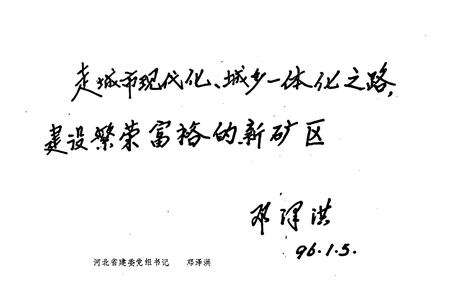 走城市现代化、城乡一体化之路,
建设繁荣富裕的新矿区
邓泽洪
96.1.5.
河北省建委党组书记 邓泽洪